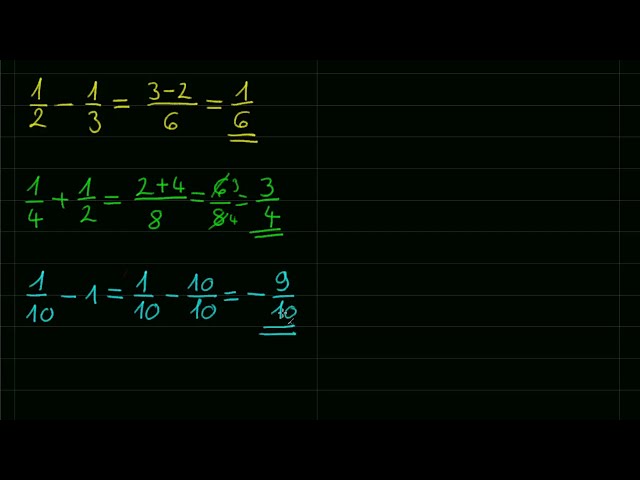 1/2 − 1/3 = (3−2)/6 = 1/6
1/4 + 1/2 = (2+4)/8 = 6̸ 3/8̸ 4 = 3/4
1/10 − 1 = 1/10 − 10/10 = − 9/10